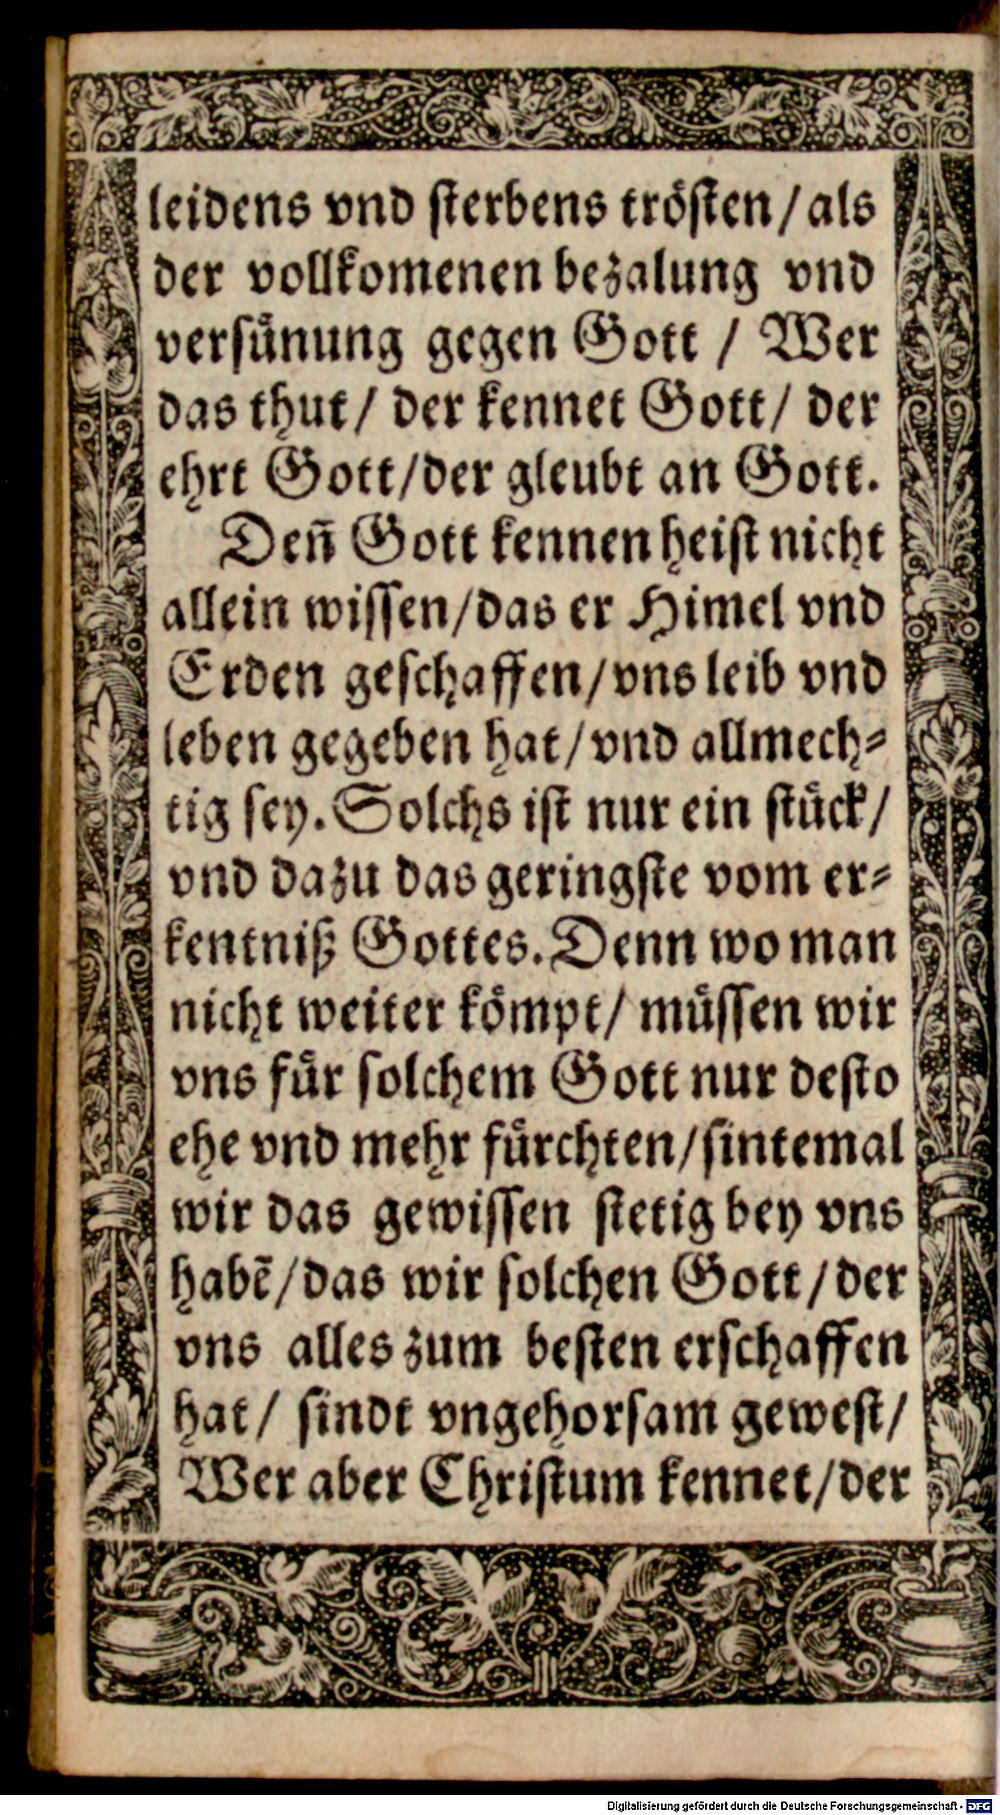 leidens vnd sterbens trösten/als
der vollkomenen bezalung vnd
versünung gegen Gott / Wer
das thut/ der kennet Gott/ der
ehrt Gott/der gleubt an Gott.
Deñ Gott kennen heist nicht
allein wissen/das er Himel vnd
Erden geschaffen/vns leib vnd
leben gegeben hat/vnd allmech⸗
tig sey. Solchs ist nur ein stück/
vnd dazu das geringste vom er⸗
kentniß Gottes. Denn wo man
nicht weiter kömpt/ müssen wir
vns für solchem Gott nur desto
ehe vnd mehr fürchten/sintemal
wir das gewissen stetig bey vns
habē/das wir solchen Gott/der
vns alles zum besten erschaffen
hat/ sindt vngehorsam gewest/
Wer aber Christum kennet/der
Digitalisierung gefördert durch die Deutsche Forschungsgemeinschaft - DFG